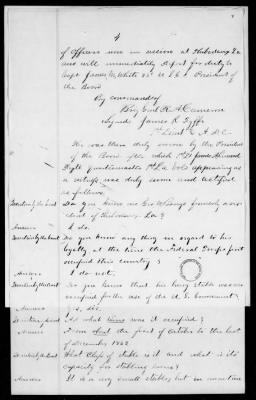 4
of Officers now in session at Thibodaux La
and will immediately report for duty to
Capt James M. White Pres of
the Board
By command of
Brig Genl R. A. Cameron
Signed James R
1st Lieut & A A D C
He was then duly sworn by the President
of the Board after which 1st Lt James
Quartermaster 1st La appearing as
a witness was duly sworn and testified
as follows
Question by the Board Do you know one Geo formerly a res-
ident of Thibodaux La?
Answer I do.
Question by the Board Do you know any thing in regard to his
loyalty at the time the Federal Troops first
occupied this country?
Answer I do not.
Question by the Board Do you know that his livery stable was ever
occupied for the use of the U. S. Government?
Answer Yes, sir.
Question by Board At what time was it occupied?
Answer From about the first of October to the last
of December 1862
Question by the Board What class of stable is it and what is its
capacity for stabling horses?
Answer It is a very small stable, but in connection